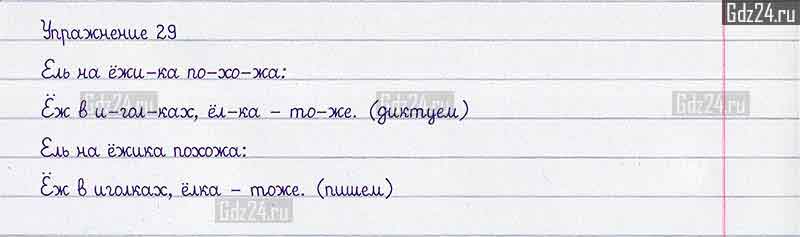 Gdz24.ru
Упражнение 29
Ель на ёжи-ка по-хо-жа:
Ёж в и-гол-ках, ёл-ка - то-же. (диктуем)
Gdz24.ru Gdz24.ru Gdz24.ru
Ель на ёжика похожа:
Ёж в иголках, ёлка - тоже. (пишем)
Gdz24.ru